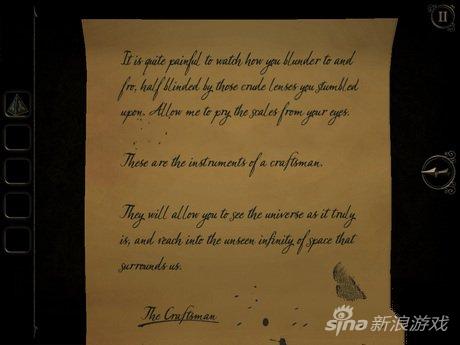 II
It is quite painful to watch how you blunder to and
fro, half blinded by those crude lenses you stumbled
upon. Allow me to pry the scales from your eyes.
These are the instruments of a craftsman.
They will allow you to see the universe as it truly
is, and reach into the unseen infinity of space that
surrounds us.
The Craftsman
sina 新浪游戏